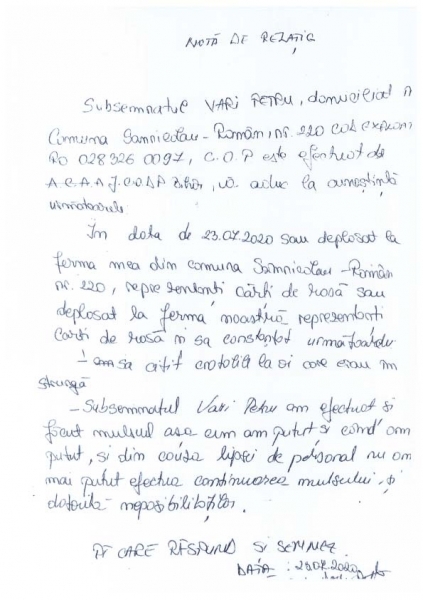 NOTĂ DE RELAȚIE
Subsemnatul VARI PETRU, domiciliat în
Comuna Sannicolau-Român, nr. 220 cod exploat
RO 028326 0097, C.O.P este efectuat de
A.C.A.A J.C.O.S.P Bihor, vă aduc la cunoștință
următoarele
În data de 23.07.2020 sau deplasat la
ferma mea din comuna Sâmnicolau-Român
nr. 220, reprezentanti cărti de rasă sau
deplasat la ferma noastră reprezentanti
carti de rasă și sa constatat următoarele
- am sa citit crotalia la oi care erau în
strungă
- Subsemnatul Vari Petru am efectuat și
făcut mulsul asa cum am putut și când am
putut, și din cauza lipsei de personal nu am
mai putut efectua continuarea mulsului, și
datorită neposibilitaților.
PT CARE RĂSPUND SI SEMNEZ.
DATA: 23.07.2020